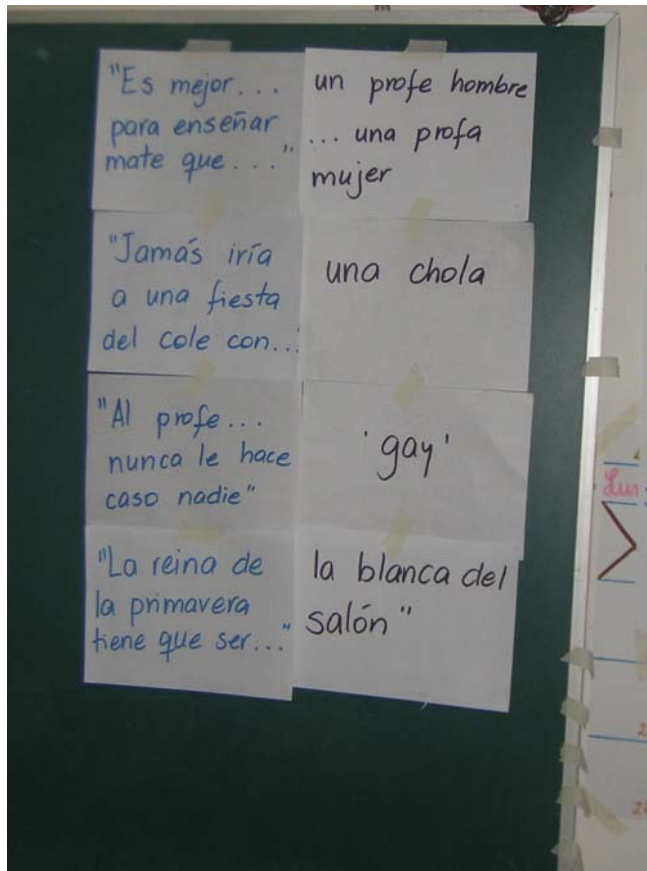 "Es mejor...
para enseñar
mate que..."
un profe hombre
... una profa
mujer
"Jamás iría
a una fiesta
del cole con...
una chola
"Al profe...
nunca le hace
caso nadie"
'gay'
"La reina de
la primavera
tiene que ser..."
la blanca del
salón"
Lun